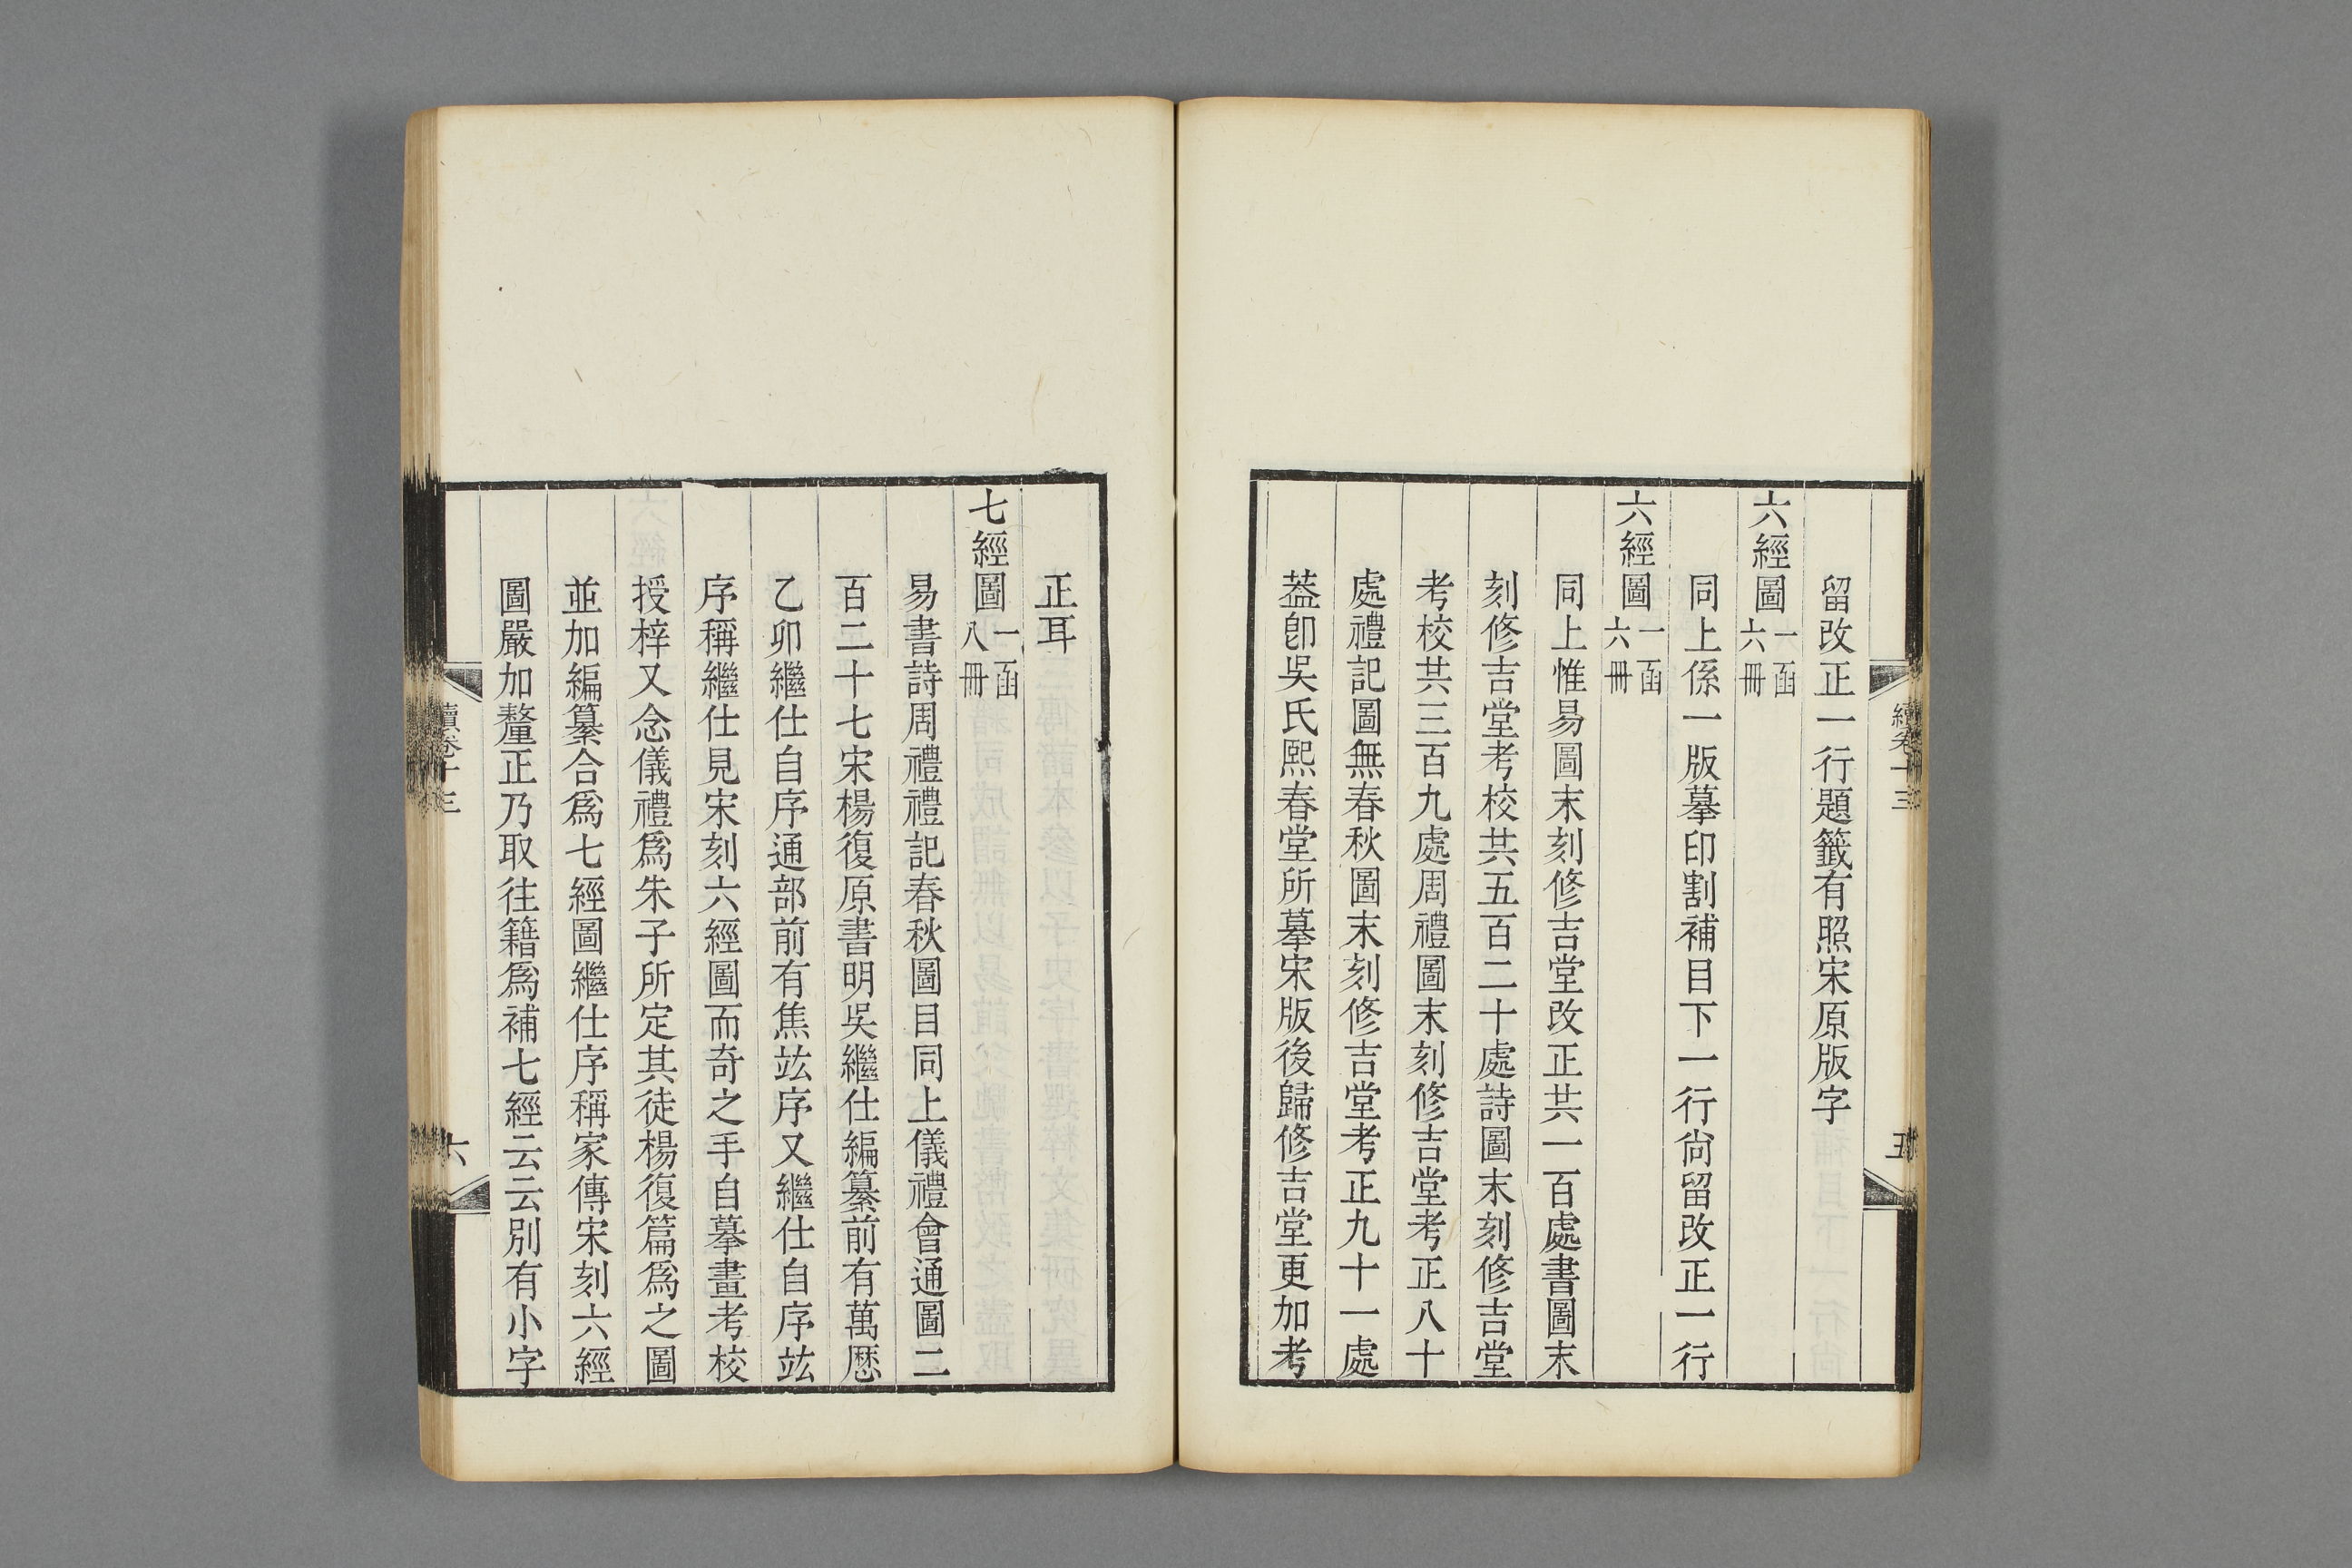 續卷十三
五
留改正一行題籤有照宋原版字
六經圖一函六冊
同上係一版摹印割補目下一行尙留改正一行
六經圖一函六冊
同上惟易圖末刻修吉堂改正共一百處書圖末
刻修吉堂考校共五百二十處詩圖末刻修吉堂
考校共三百九處周禮圖末刻修吉堂考正八十
處禮記圖無春秋圖末刻修吉堂考正九十一處
葢卽吳氏熙春堂所摹宋版後歸修吉堂更加考
正耳
七經圖一函八冊
易書詩周禮禮記春秋圖目同上儀禮會通圖二
百二十七宋楊復原書明吳繼仕編纂前有萬厯
乙卯繼仕自序通部前有焦竑序又繼仕自序竑
序稱繼仕見宋刻六經圖而奇之手自摹畫考校
授梓又念儀禮爲朱子所定其徒楊復篇爲之圖
並加編纂合爲七經圖繼仕序稱家傳宋刻六經
圖嚴加釐正乃取往籍爲補七經云云別有小字
續卷十三
六